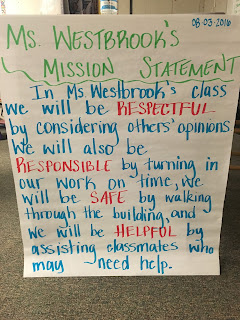 08-03-2016
Ms. Westbrook's
Mission Statement
In Ms Westbrook's class
we will be RESPECTFUL
by considering others' opinions
We will also be
RESPONSIBLE by turning in
our work on time, we
will be SAFE by walking
through the building, and
we will be HELPFUL by
assisting classmates who
may need help.